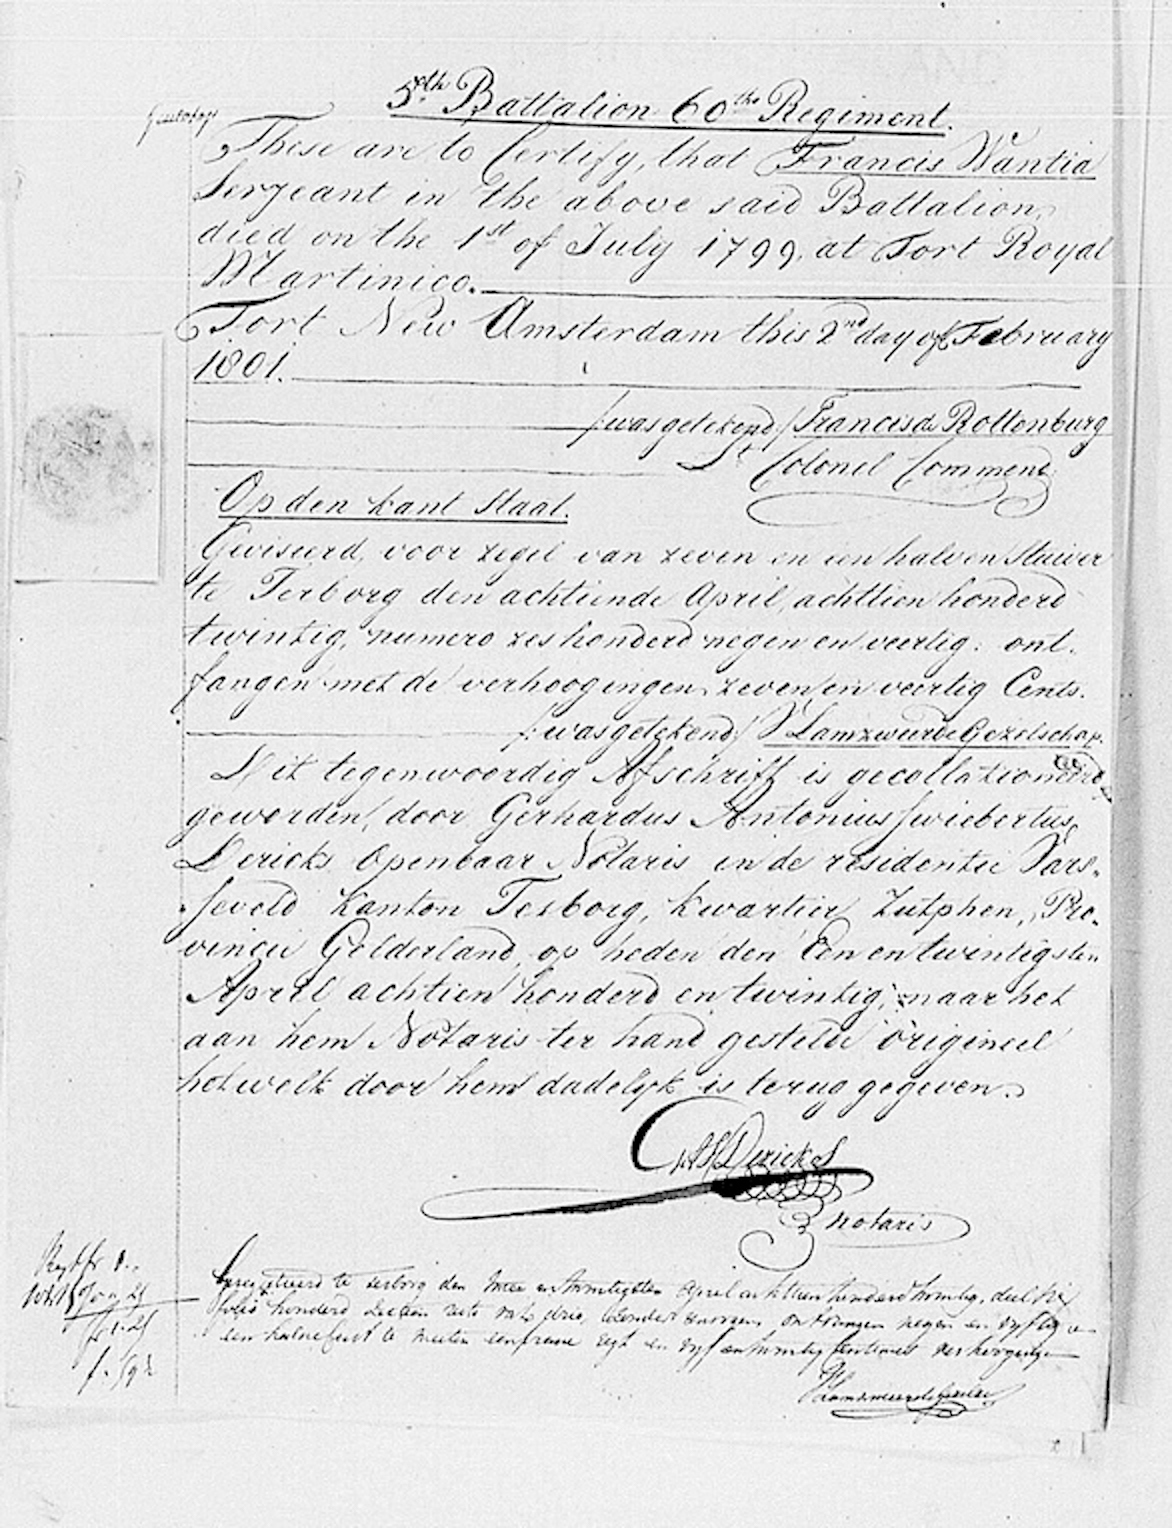 5th Battalion 60ths Regiment.
These are to Certify, that Francis Wantia
Sergeant in the above said Battalion,
died on the 1st of July 1799, at Fort Royal
Martinico.
Fort New Amsterdam this 2nd day of February
1801.
/was getekend/ Francis de Rottenburg
Lt Colonel Commend
Op den kant Staat.
Geviseerd, voor zegel van zeven en een halven Stuiver
te Terborg den achttiende April, achttien honderd
twintig, numero zes honderd negen en veertig: ont-
fangen met de verhoogingen, zeven en veertig Cents.
/:was getekend/ Lamzweerde Gezelschap.
Dit tegenwoordig Afschrift is gecollationeerd
geworden, door Gerhardus Antonius Swiebertus
Dericks Openbaar Notaris in de residentie Vars-
seveld Kanton Terborg, kwartier Zutphen, Pro-
vincie Gelderland, op heden den Een en twintigsten
April achtien honderd en twintig, naar het
aan hem Notaris ter hand gestelde origineel
het welk door hem dadelyk is terug gegeven.
GAS Dericks
notaris
Geregistreerd te Terborg den twee en twintigsten April achttien honderd twintig, deel
folio honderd recto vak drie, zonder ontvangen negen en vyftig
een te en vyf en twintig verhooging